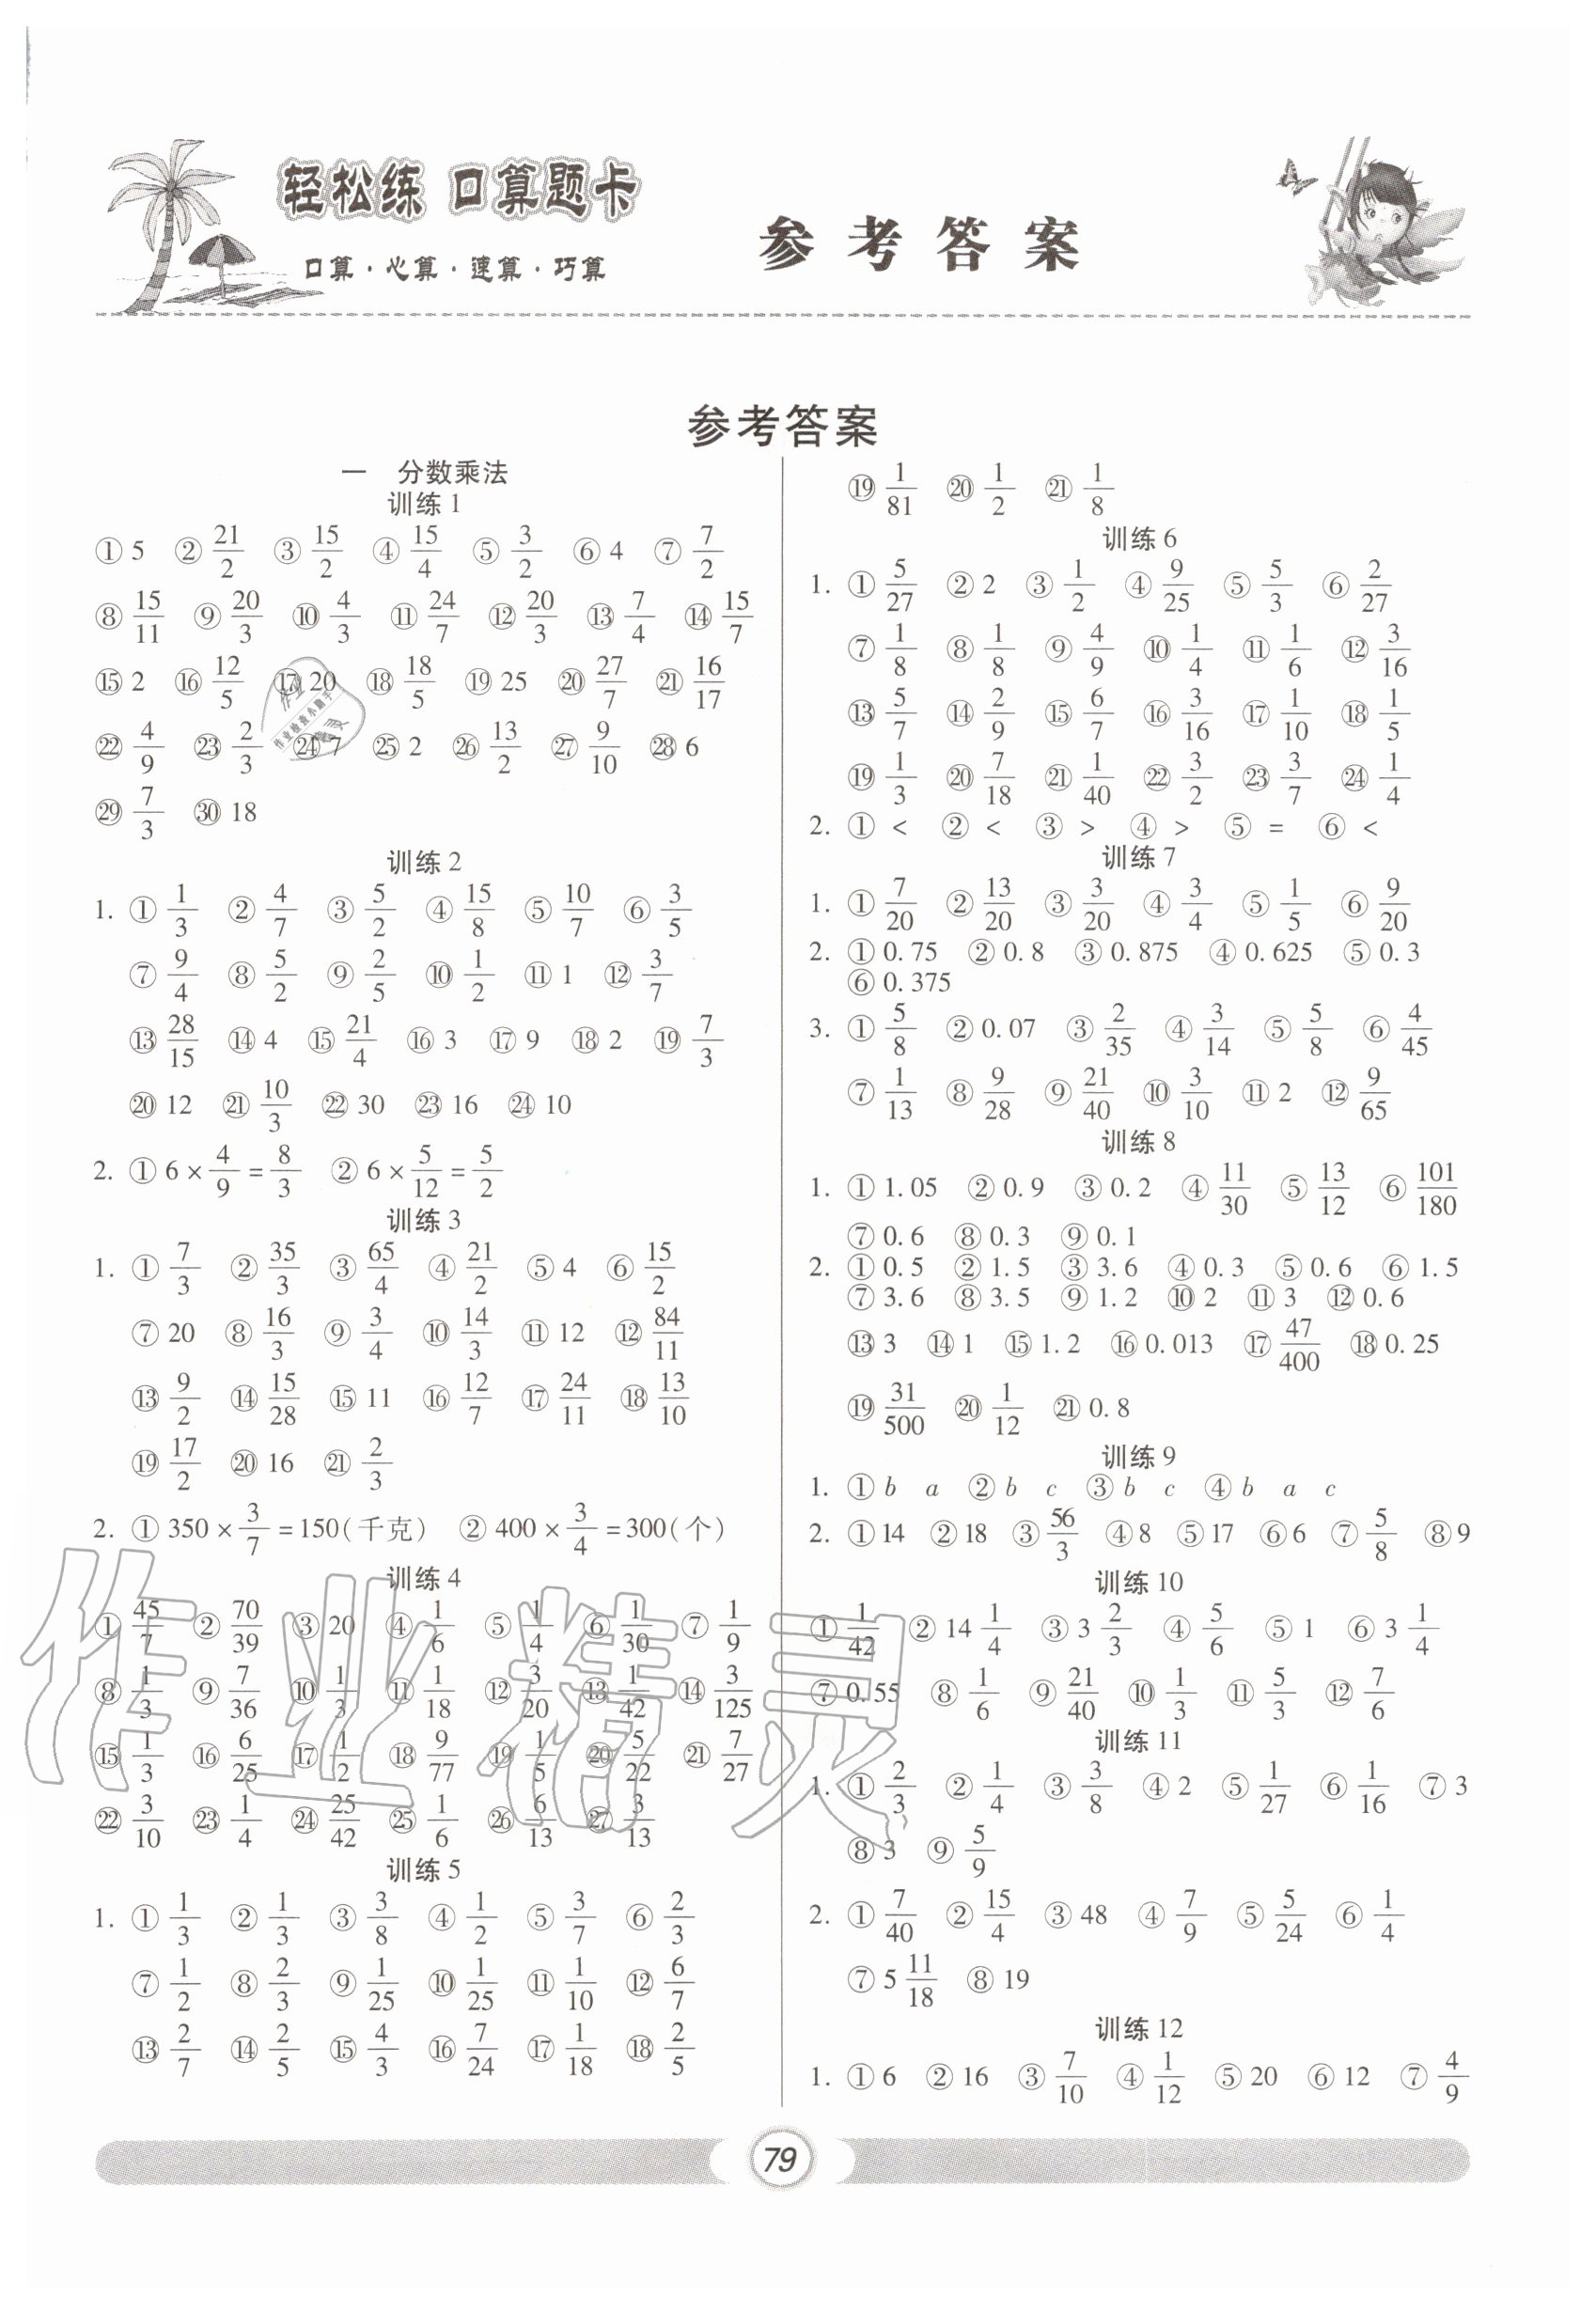 轻松练 口算题卡
口算·心算·速算·巧算
参考答案
参考答案
一 分数乘法
训练1
①5 ②21/2 ③15/2 ④15/4 ⑤3/2 ⑥4 ⑦7/2
⑧15/11 ⑨20/3 ⑩4/3 ⑪24/7 ⑫20/3 ⑬7/4 ⑭15/7
⑮2 ⑯12/5 ⑰20 ⑱18/5 ⑲25 ⑳27/7 ㉑16/17
㉒4/9 ㉓2/3 ㉔7 ㉕2 ㉖13/2 ㉗9/10 ㉘6
㉙7/3 ㉚18
作业检查小助手
训练2
1. ①1/3 ②4/7 ③5/2 ④15/8 ⑤10/7 ⑥3/5
⑦9/4 ⑧5/2 ⑨2/5 ⑩1/2 ⑪1 ⑫3/7
⑬28/15 ⑭4 ⑮21/4 ⑯3 ⑰9 ⑱2 ⑲7/3
⑳12 ㉑10/3 ㉒30 ㉓16 ㉔10
2. ①6×4/9=8/3 ②6×5/12=5/2
训练3
1. ①7/3 ②35/3 ③65/4 ④21/2 ⑤4 ⑥15/2
⑦20 ⑧16/3 ⑨3/4 ⑩14/3 ⑪12 ⑫84/11
⑬9/2 ⑭15/28 ⑮11 ⑯12/7 ⑰24/11 ⑱13/10
⑲17/2 ⑳16 ㉑2/3
2. ①350×3/7=150(千克) ②400×3/4=300(个)
训练4
①45/7 ②70/39 ③20 ④1/6 ⑤1/4 ⑥1/30 ⑦1/9
⑧1/3 ⑨7/36 ⑩1/3 ⑪1/18 ⑫3/20 ⑬1/42 ⑭3/125
⑮1/3 ⑯6/25 ⑰1/2 ⑱9/77 ⑲1/5 ⑳5/22 ㉑7/27
㉒3/10 ㉓1/4 ㉔25/42 ㉕1/6 ㉖6/13 ㉗3/13
作业精灵
训练5
1. ①1/3 ②1/3 ③3/8 ④1/2 ⑤3/7 ⑥2/3
⑦1/2 ⑧2/3 ⑨1/25 ⑩1/25 ⑪1/10 ⑫6/7
⑬2/7 ⑭2/5 ⑮4/3 ⑯7/24 ⑰1/18 ⑱2/5
⑲1/81 ⑳1/2 ㉑1/8
训练6
1. ①5/27 ②2 ③1/2 ④9/25 ⑤5/3 ⑥2/27
⑦1/8 ⑧1/8 ⑨4/9 ⑩1/4 ⑪1/6 ⑫3/16
⑬5/7 ⑭2/9 ⑮6/7 ⑯3/16 ⑰1/10 ⑱1/5
⑲1/3 ⑳7/18 ㉑1/40 ㉒3/2 ㉓3/7 ㉔1/4
2. ①< ②< ③> ④> ⑤= ⑥<
训练7
1. ①7/20 ②13/20 ③3/20 ④3/4 ⑤1/5 ⑥9/20
2. ①0.75 ②0.8 ③0.875 ④0.625 ⑤0.3
⑥0.375
3. ①5/8 ②0.07 ③2/35 ④3/14 ⑤5/8 ⑥4/45
⑦1/13 ⑧9/28 ⑨21/40 ⑩3/10 ⑪2 ⑫9/65
训练8
1. ①1.05 ②0.9 ③0.2 ④11/30 ⑤13/12 ⑥101/180
⑦0.6 ⑧0.3 ⑨0.1
2. ①0.5 ②1.5 ③3.6 ④0.3 ⑤0.6 ⑥1.5
⑦3.6 ⑧3.5 ⑨1.2 ⑩2 ⑪3 ⑫0.6
⑬3 ⑭1 ⑮1.2 ⑯0.013 ⑰47/400 ⑱0.25
⑲31/500 ⑳1/12 ㉑0.8
训练9
1. ①b a ②b c ③b c ④b a c
2. ①14 ②18 ③56/3 ④8 ⑤17 ⑥6 ⑦5/8 ⑧9
训练10
①1/42 ②14 1/4 ③3 2/3 ④5/6 ⑤1 ⑥3 1/4
⑦0.55 ⑧1/6 ⑨21/40 ⑩1/3 ⑪5/3 ⑫7/6
训练11
1. ①2/3 ②1/4 ③3/8 ④2 ⑤1/27 ⑥1/16 ⑦3
⑧3 ⑨5/9
2. ①7/40 ②15/4 ③48 ④7/9 ⑤5/24 ⑥1/4
⑦5 11/18 ⑧19
训练12
1. ①6 ②16 ③7/10 ④1/12 ⑤20 ⑥12 ⑦4/9
79